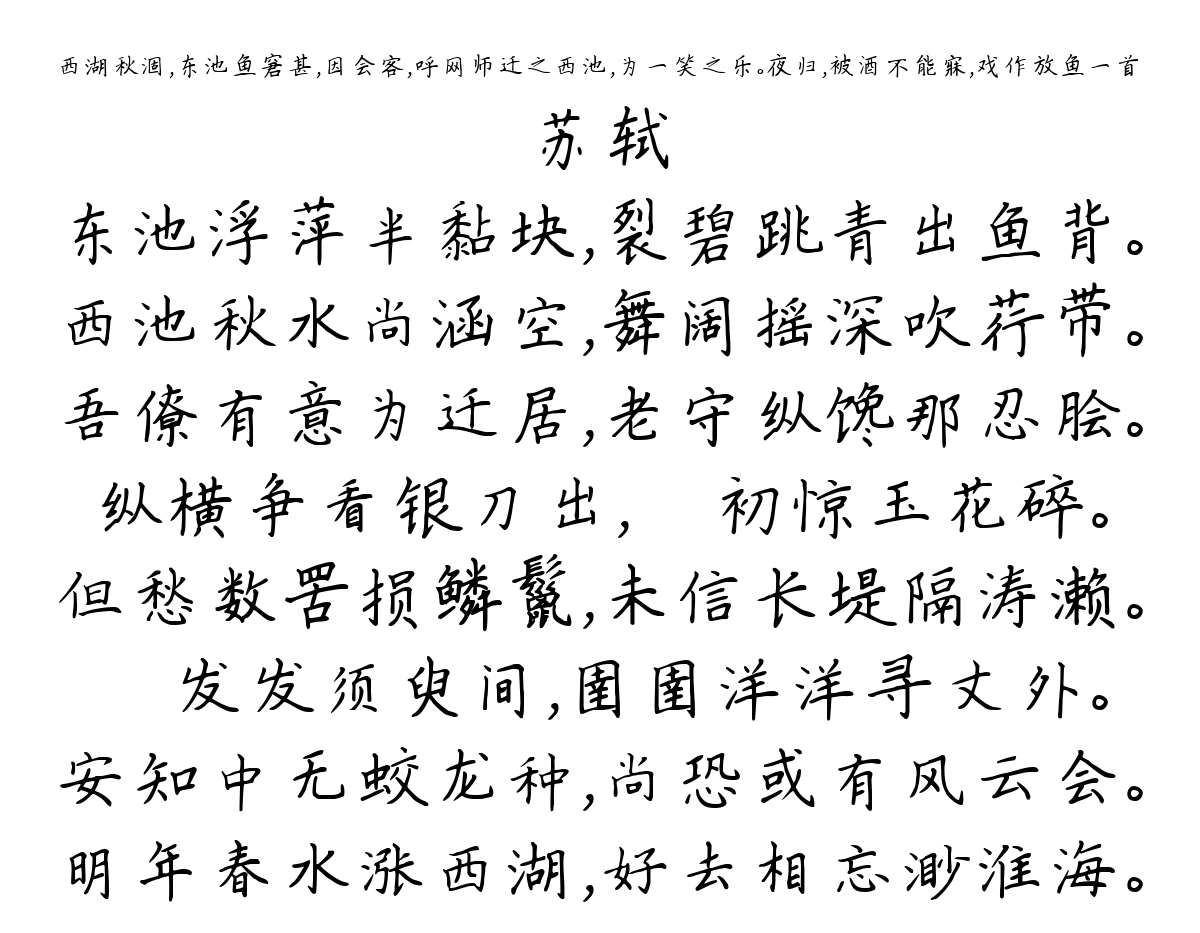 西湖秋涸,东池鱼窘甚,因会客,呼网师迁之西池,为一笑之乐。夜归,被酒不能寐,戏作放鱼一首
苏轼
东池浮萍半黏块,裂碧跳青出鱼背。
西池秋水尚涵空,舞阔摇深吹荇带。
吾僚有意为迁居,老守纵馋那忍脍。
纵横争看银刀出, 初惊玉花碎。
但愁数罟损鳞鬣,未信长堤隔涛濑。
发发须臾间,圉圉洋洋寻丈外。
安知中无蛟龙种,尚恐或有风云会。
明年春水涨西湖,好去相忘渺淮海。